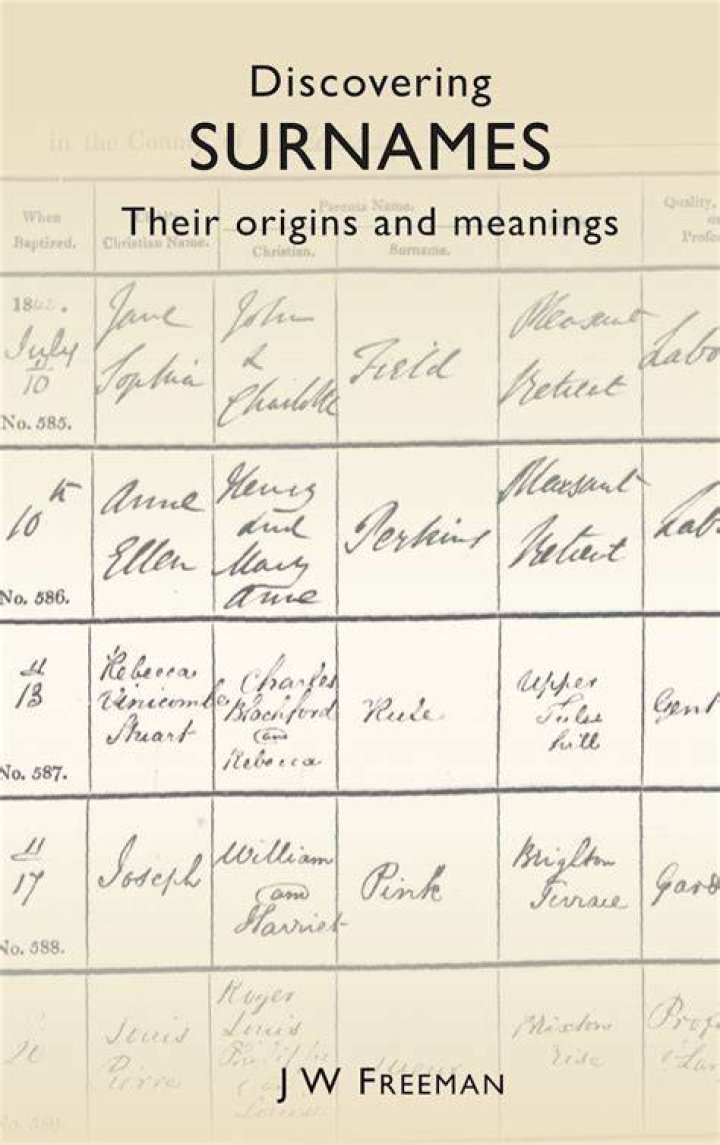 Discovering
SURNAMES
Their origins and meanings
in the Coun
When
Baptized.
Christian Name.
Parents Name.
Christian.
Surname.
Quality,
Profes
18
July
10
No. 585.
Jane
Sophia
John
&
Charlotte
Field
Pleasant
Retreat
Labo
10th
No. 586.
Anne
Ellen
Henry
and
Mary
Anne
Perkins
Pleasant
Retreat
Lab
"
13
No. 587.
Rebecca
Vinicombe
Stuart
Charles
Blachford
and
Rebecca
Rule
Upper
Tulse
hill
Gent
"
17
No. 588.
Joseph
William
and
Harriet
Pink
Brighton
Terrace
Gard
20
Louis
Pierre
Roger
Louis
Louise
Brixton
rise
Prof
J W FREEMAN